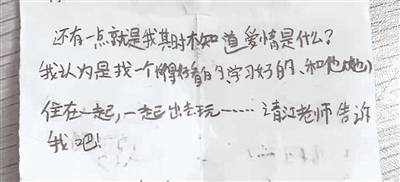 还有一点就是我其时不知道爱情是什么?
我认为是找一个长得好看的、学习好的、和他(她)
住在一起,一起出去玩……请江老师告诉
我吧!